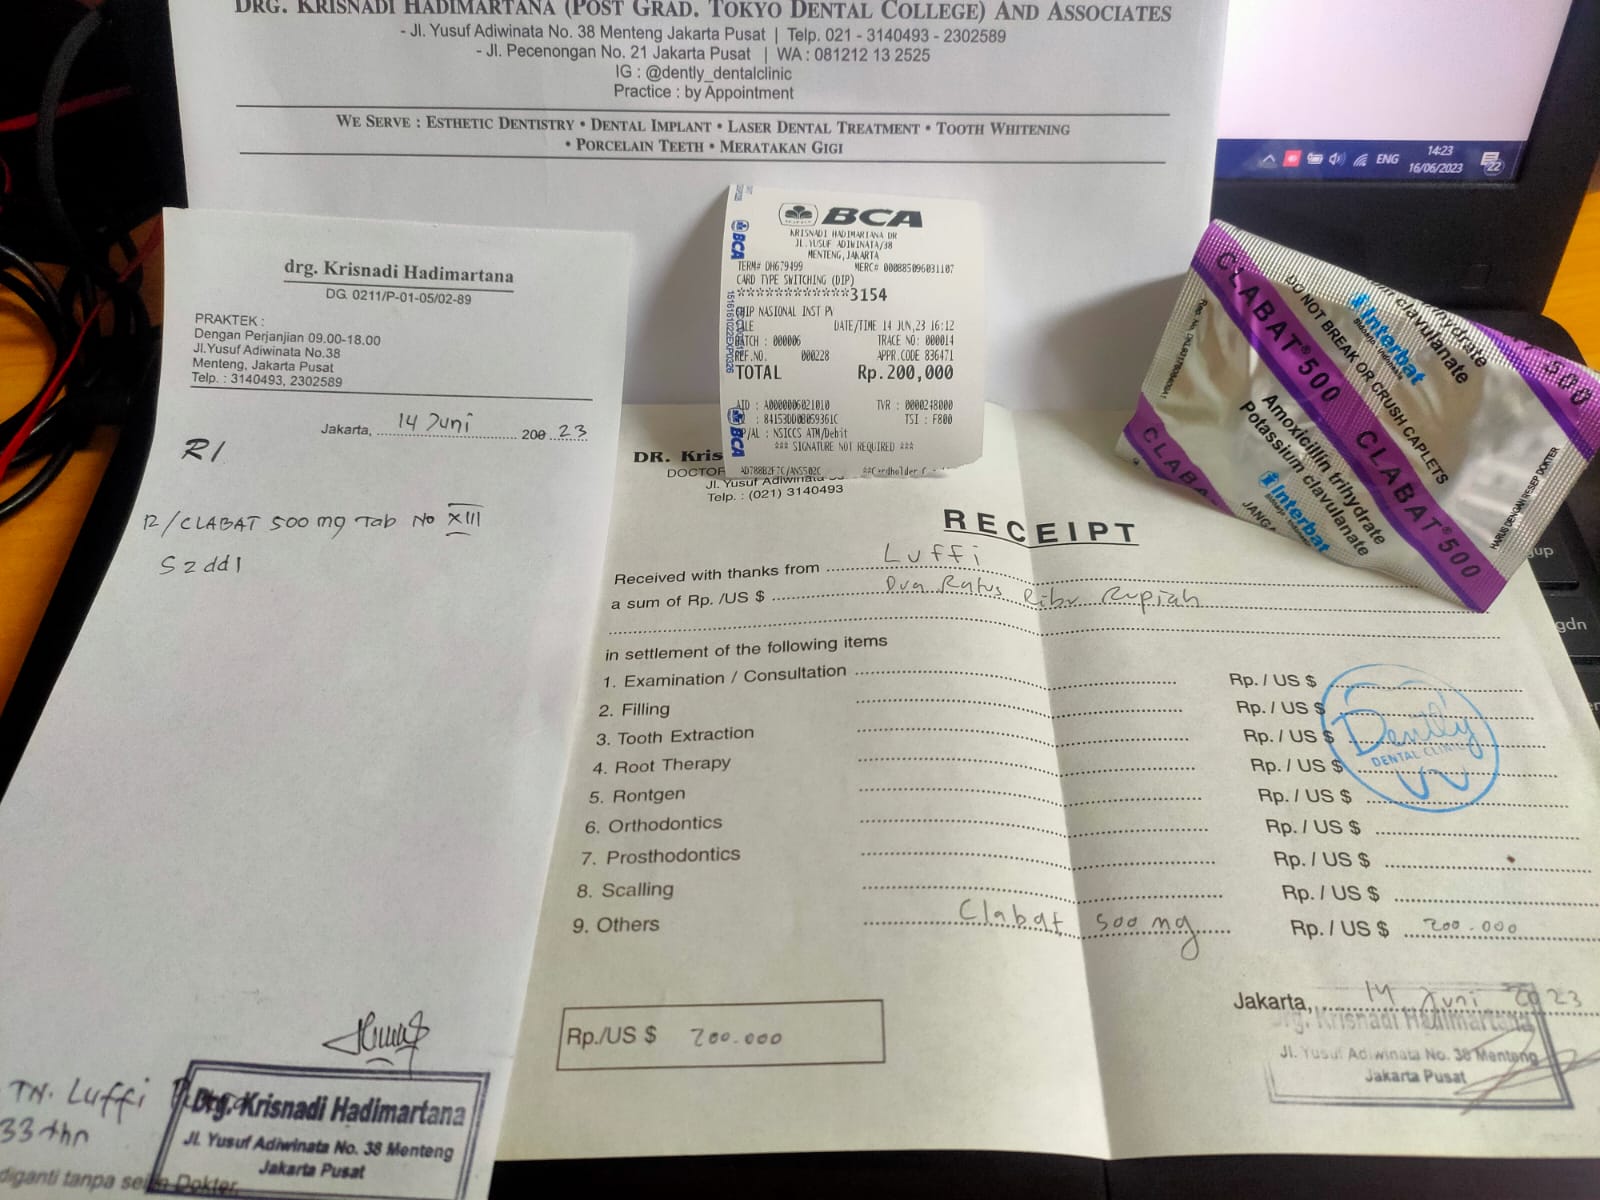 DRG. KRISNADI HADIMARTANA (POST GRAD. TOKYO DENTAL COLLEGE) AND ASSOCIATES
- Jl. Yusuf Adiwinata No. 38 Menteng Jakarta Pusat | Telp. 021 - 3140493 - 2302589
- Jl. Pecenongan No. 21 Jakarta Pusat | WA : 081212 13 2525
IG : @dently_dentalclinic
Practice : by Appointment
WE SERVE : ESTHETIC DENTISTRY • DENTAL IMPLANT • LASER DENTAL TREATMENT • TOOTH WHITENING
• PORCELAIN TEETH • MERATAKAN GIGI
ENG
14:23
16/06/2023
22
drg. Krisnadi Hadimartana
DG. 0211/P-01-05/02-89
PRAKTEK :
Dengan Perjanjian 09.00-18.00
Jl.Yusuf Adiwinata No.38
Menteng, Jakarta Pusat
Telp. : 3140493, 2302589
Jakarta, 14 Juni 200 23
R/.
R/CLABAT 500 mg Tab No XIII
S 2 dd 1
TN. Luffi
33 thn
Drg. Krisnadi Hadimartana
Jl. Yusuf Adiwinata No. 38 Menteng
Jakarta Pusat
diganti tanpa Dokter.
BCA
KRISNADI HADIMARTANA DR
JL.YUSUF ADIWINATA/38
MENTENG, JAKARTA
TERM# DH679499 MERC# 000885096031107
CARD TYPE SWITCHING (DIP)
************3154
CHIP NASIONAL INST PV
SALE DATE/TIME 14 JUN,23 16:12
BATCH : 000006 TRACE NO: 000014
REF.NO. 000228 APPR.CODE 836471
TOTAL Rp.200,000
AID : A0000006021010 TVR : 0000248000
TSI : F800
P/AL : NSICCS ATM/Debit
*** SIGNATURE NOT REQUIRED ***
BCA
BCA
BCA
DR. Kris
DOCTOR
Jl. Yusuf Adiwinata
Telp. : (021) 3140493
RECEIPT
Received with thanks from Luffi
a sum of Rp. /US $ Dua Ratus Ribu Rupiah
in settlement of the following items
1. Examination / Consultation Rp. / US $
2. Filling Rp. / US $
3. Tooth Extraction Rp. / US $
4. Root Therapy Rp. / US $
5. Rontgen Rp. / US $
6. Orthodontics Rp. / US $
7. Prosthodontics Rp. / US $
8. Scalling Rp. / US $
9. Others Clabat 500 mg Rp. / US $ 200.000
Dently
DENTAL CLINIC
Rp./US $ 200.000
Jakarta, 14 Juni 2023
Drg. Krisnadi Hadimartana
Jl. Yusuf Adiwinata No. 38 Menteng
Jakarta Pusat
CLABAT® 500
DO NOT BREAK OR CRUSH CAPLETS
CLABAT® 500
interbat
Sidoarjo, Indonesia
Amoxicillin trihydrate
Potassium clavulanate
interbat
HARUS DENGAN RESEP DOKTER
CLABA
500
clavulanate
gdn